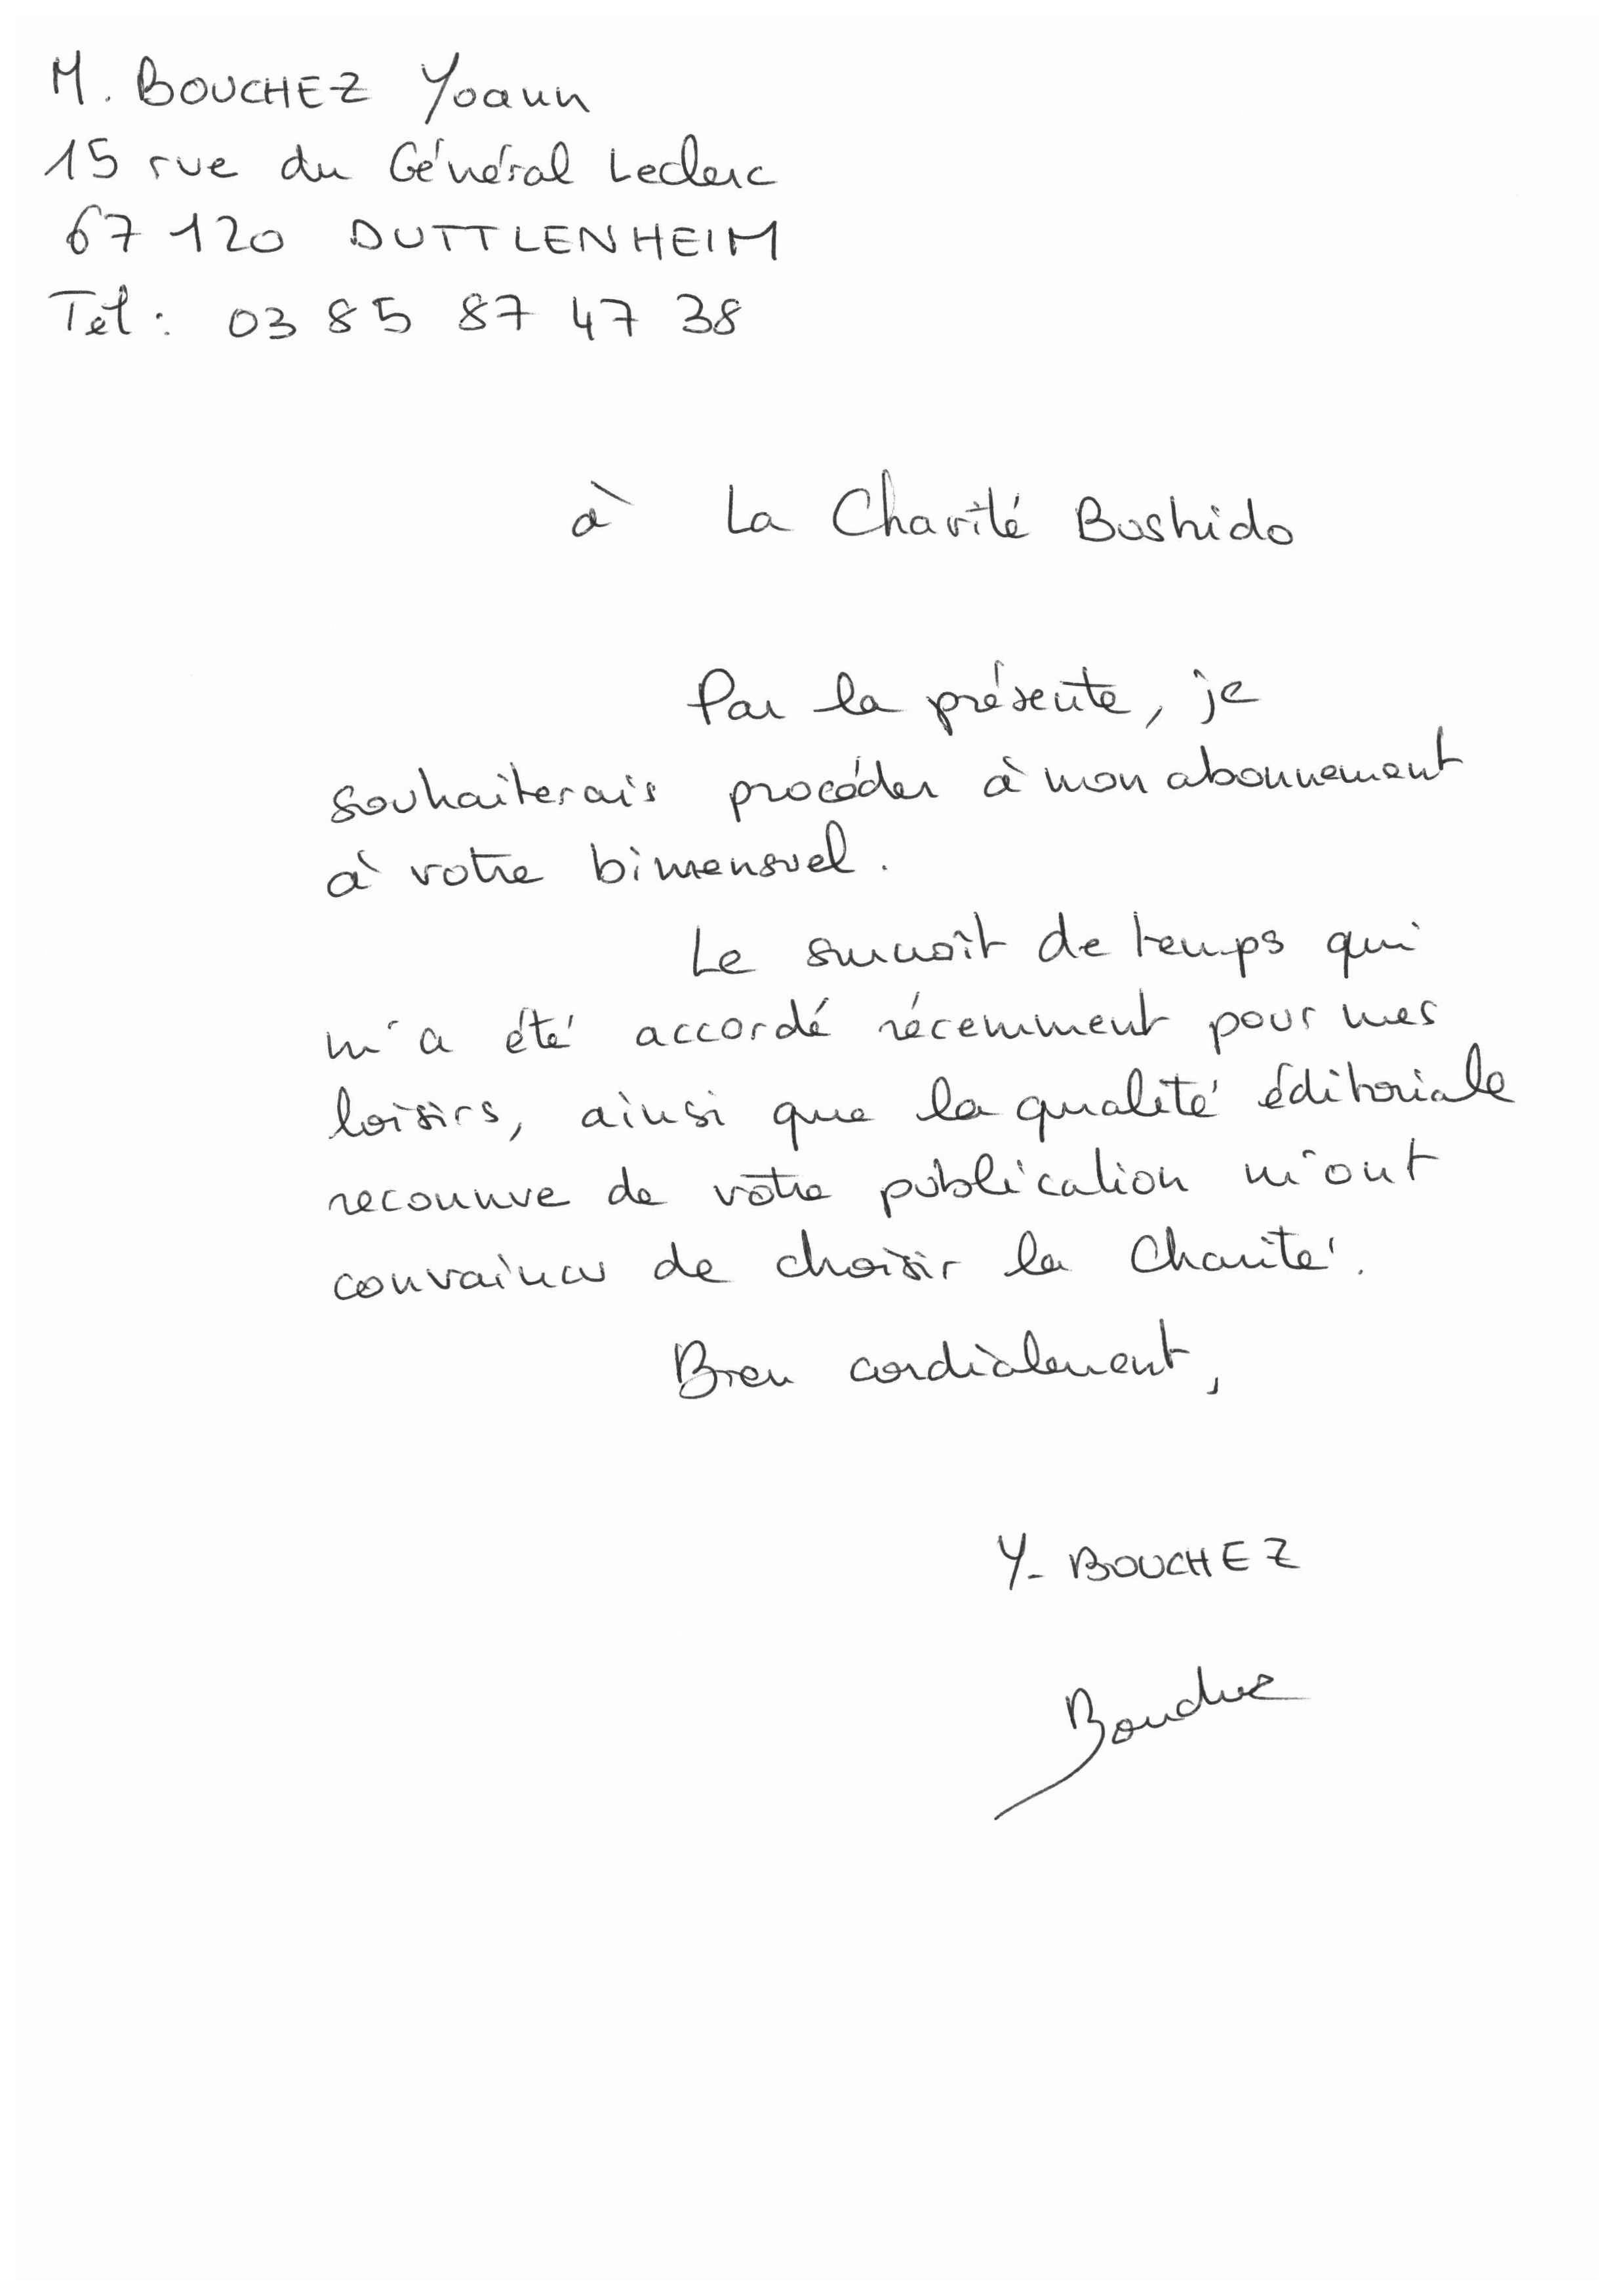 M. BOUCHEZ Yoann
15 rue du Général Leclerc
67 120 DUTTLENHEIM
Tél : 03 85 87 47 38
à La Charité Bushido
Par la présente, je
souhaiterais procéder à mon abonnement
à votre bimensuel.
Le surcroît de temps qui
m'a été accordé récemment pour mes
loisirs, ainsi que la qualité éditoriale
reconnue de votre publication m'ont
convaincu de choisir la Charité.
Bien cordialement,
Y. BOUCHEZ
Bouchez